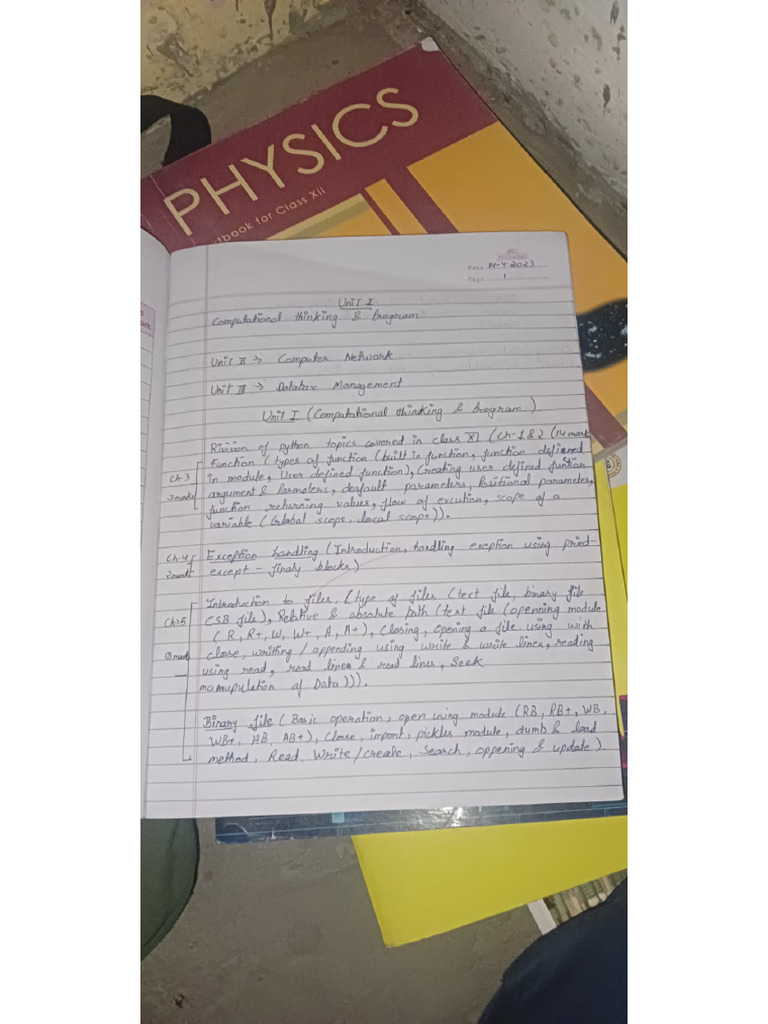 PHYSICS
tbook for Class XII
Date 14-4-2023
Page 1
Unit I
Computational thinking & Program
Unit II → Computer Network
Unit III → Databax Management
Unit I (Computational thinking & Program)
Rivision of python topics covered in class XI (Ch-1 & 2 (14 mark
Function (types of function (built is function, function defined
Ch-3
in module, User defined function), Creating user defined funtion
3 mark
argument & Parmeters, deafault parameters, Positional parameter,
function returning values, flow of excution, scope of a
variable (Global scope, local scope)).
Ch-4
Exception handling (Introduction, handling exeption using
2 mark
except - finaly blocks)
Introduction to files, (type of files (text file, binary file
Ch-5
CSB file), Relative & absolute path (text file (openning module
(R, R+, W, W+, A, A+), Closing, Opening a file using with
mark
close, writting / appending using write & write lines, reading
using read, read lines & read lines, Seek
manupulation of Data))).
Binary file (Basic operation, open using module (RB, RB+, WB,
WB+, AB, AB+), Close, import, pickles module, dumb & load
method, Read, Write/create, Search, oppening & update)